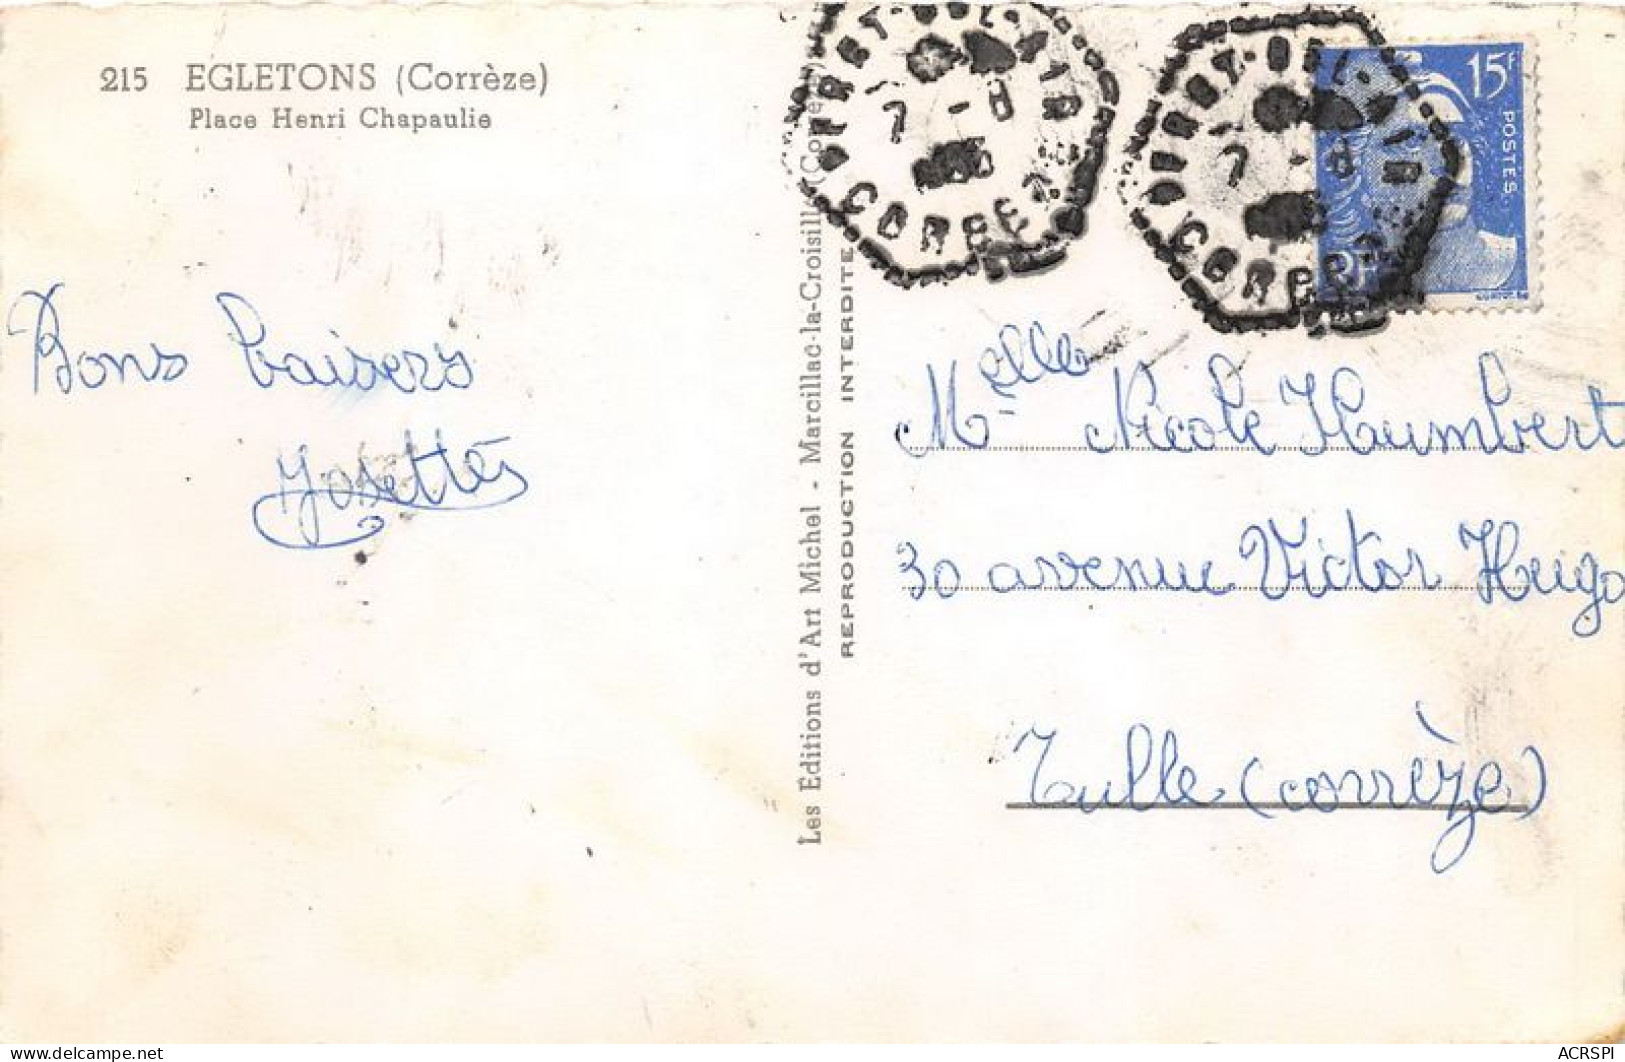 215 EGLETONS (Corrèze)
Place Henri Chapaulie
Bons baisers
Josette
Les Éditions d'Art Michel - Marcillac-la-Croisille (Corrèze)
REPRODUCTION INTERDITE
7 - 8
CORREZE
7 - 8
CORREZE
15F
POSTES
RF
Melle Nicole Humbert
30 avenue Victor Hugo
Tulle (corrèze)
ACRSPI